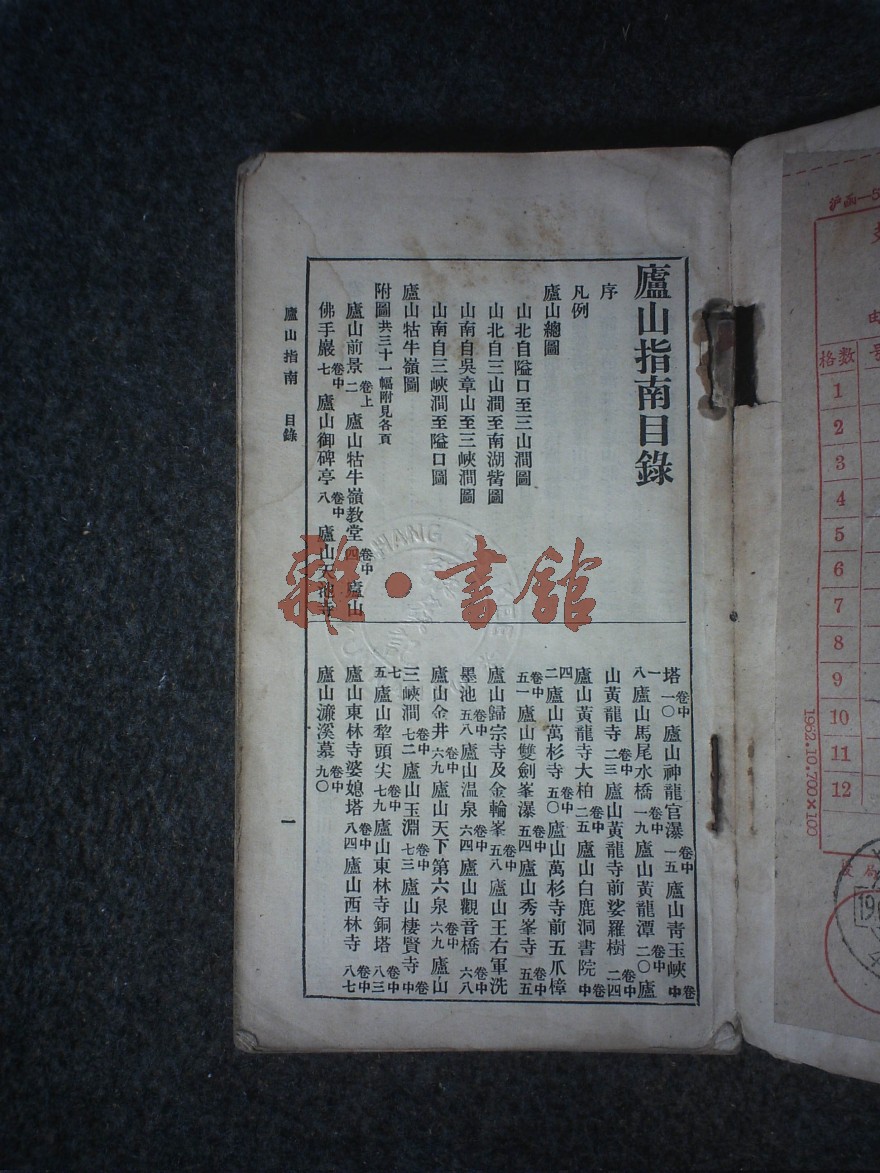 廬山指南目錄
序
凡例
廬山總圖
山北自隘口至三山澗圖
山北自三山澗至南湖觜圖
山南自吳章山至三峽澗圖
山南自三峽澗至隘口圖
廬山牯牛嶺圖
附圖共三十一幅附見各頁
廬山前景卷上二 廬山牯牛嶺教堂卷中四 廬山
佛手巖卷中七 廬山御碑亭卷中八 廬山天池寺
塔卷中一〇 廬山神龍官瀑卷中一五 廬山青玉峽卷中
一八 廬山馬尾水橋卷中一九 廬山黃龍潭卷中二〇 廬
山黃龍寺卷中二三 廬山黃龍寺前娑羅樹卷中二四
廬山黃龍寺大柏卷中二五 廬山白鹿洞書院卷中
四二 廬山萬杉寺卷中五〇 廬山萬杉寺前五爪樟
卷中五一 廬山雙劍峯瀑卷中五四 廬山秀峯寺卷中五五
廬山歸宗寺及金輪峯卷中五八 廬山王右軍洗
墨池卷中五八 廬山温泉卷中六四 廬山觀音橋卷中六八
廬山金井卷中六九 廬山天下第六泉卷中六九 廬山
三峽澗卷中七二 廬山玉淵卷中七三 廬山棲賢寺卷中
七五 廬山犂頭尖卷中七九 廬山東林寺銅塔卷中八三
廬山東林寺婆媳塔卷中八四 廬山西林寺卷中八七
廬山濂溪墓卷中九〇
廬山指南 目錄
一
雜·書館
沪函—5
格数
1
2
3
4
5
6
7
8
9
10
11
12
1962.10.700×100